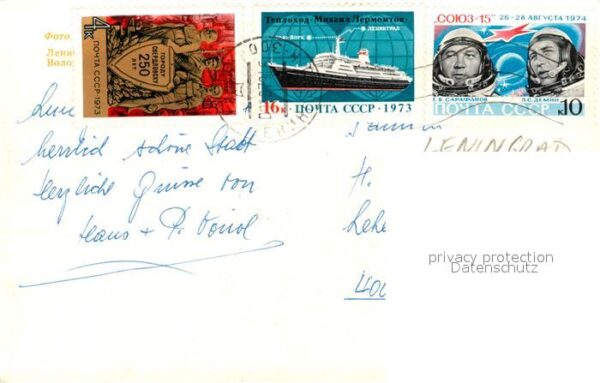 Фото
Лени
Воло
4к
ПОЧТА СССР·1973
ГОРОДУ
СВЕРДЛОВСКУ
250
ЛЕТ
Теплоход·Михаил Лермонтов·
ЛЕНИНГРАД
16к ПОЧТА СССР·1973
"СОЮЗ-15" 26-28 АВГУСТА 1974
Г.В.САРАФАНОВ Л.С.ДЕМИН
ПОЧТА СССР к10
LENINGRAD
herrlich schöne Stadt
herzliche Grüsse von
Hans + P.
H.
400
privacy protection
Datenschutz